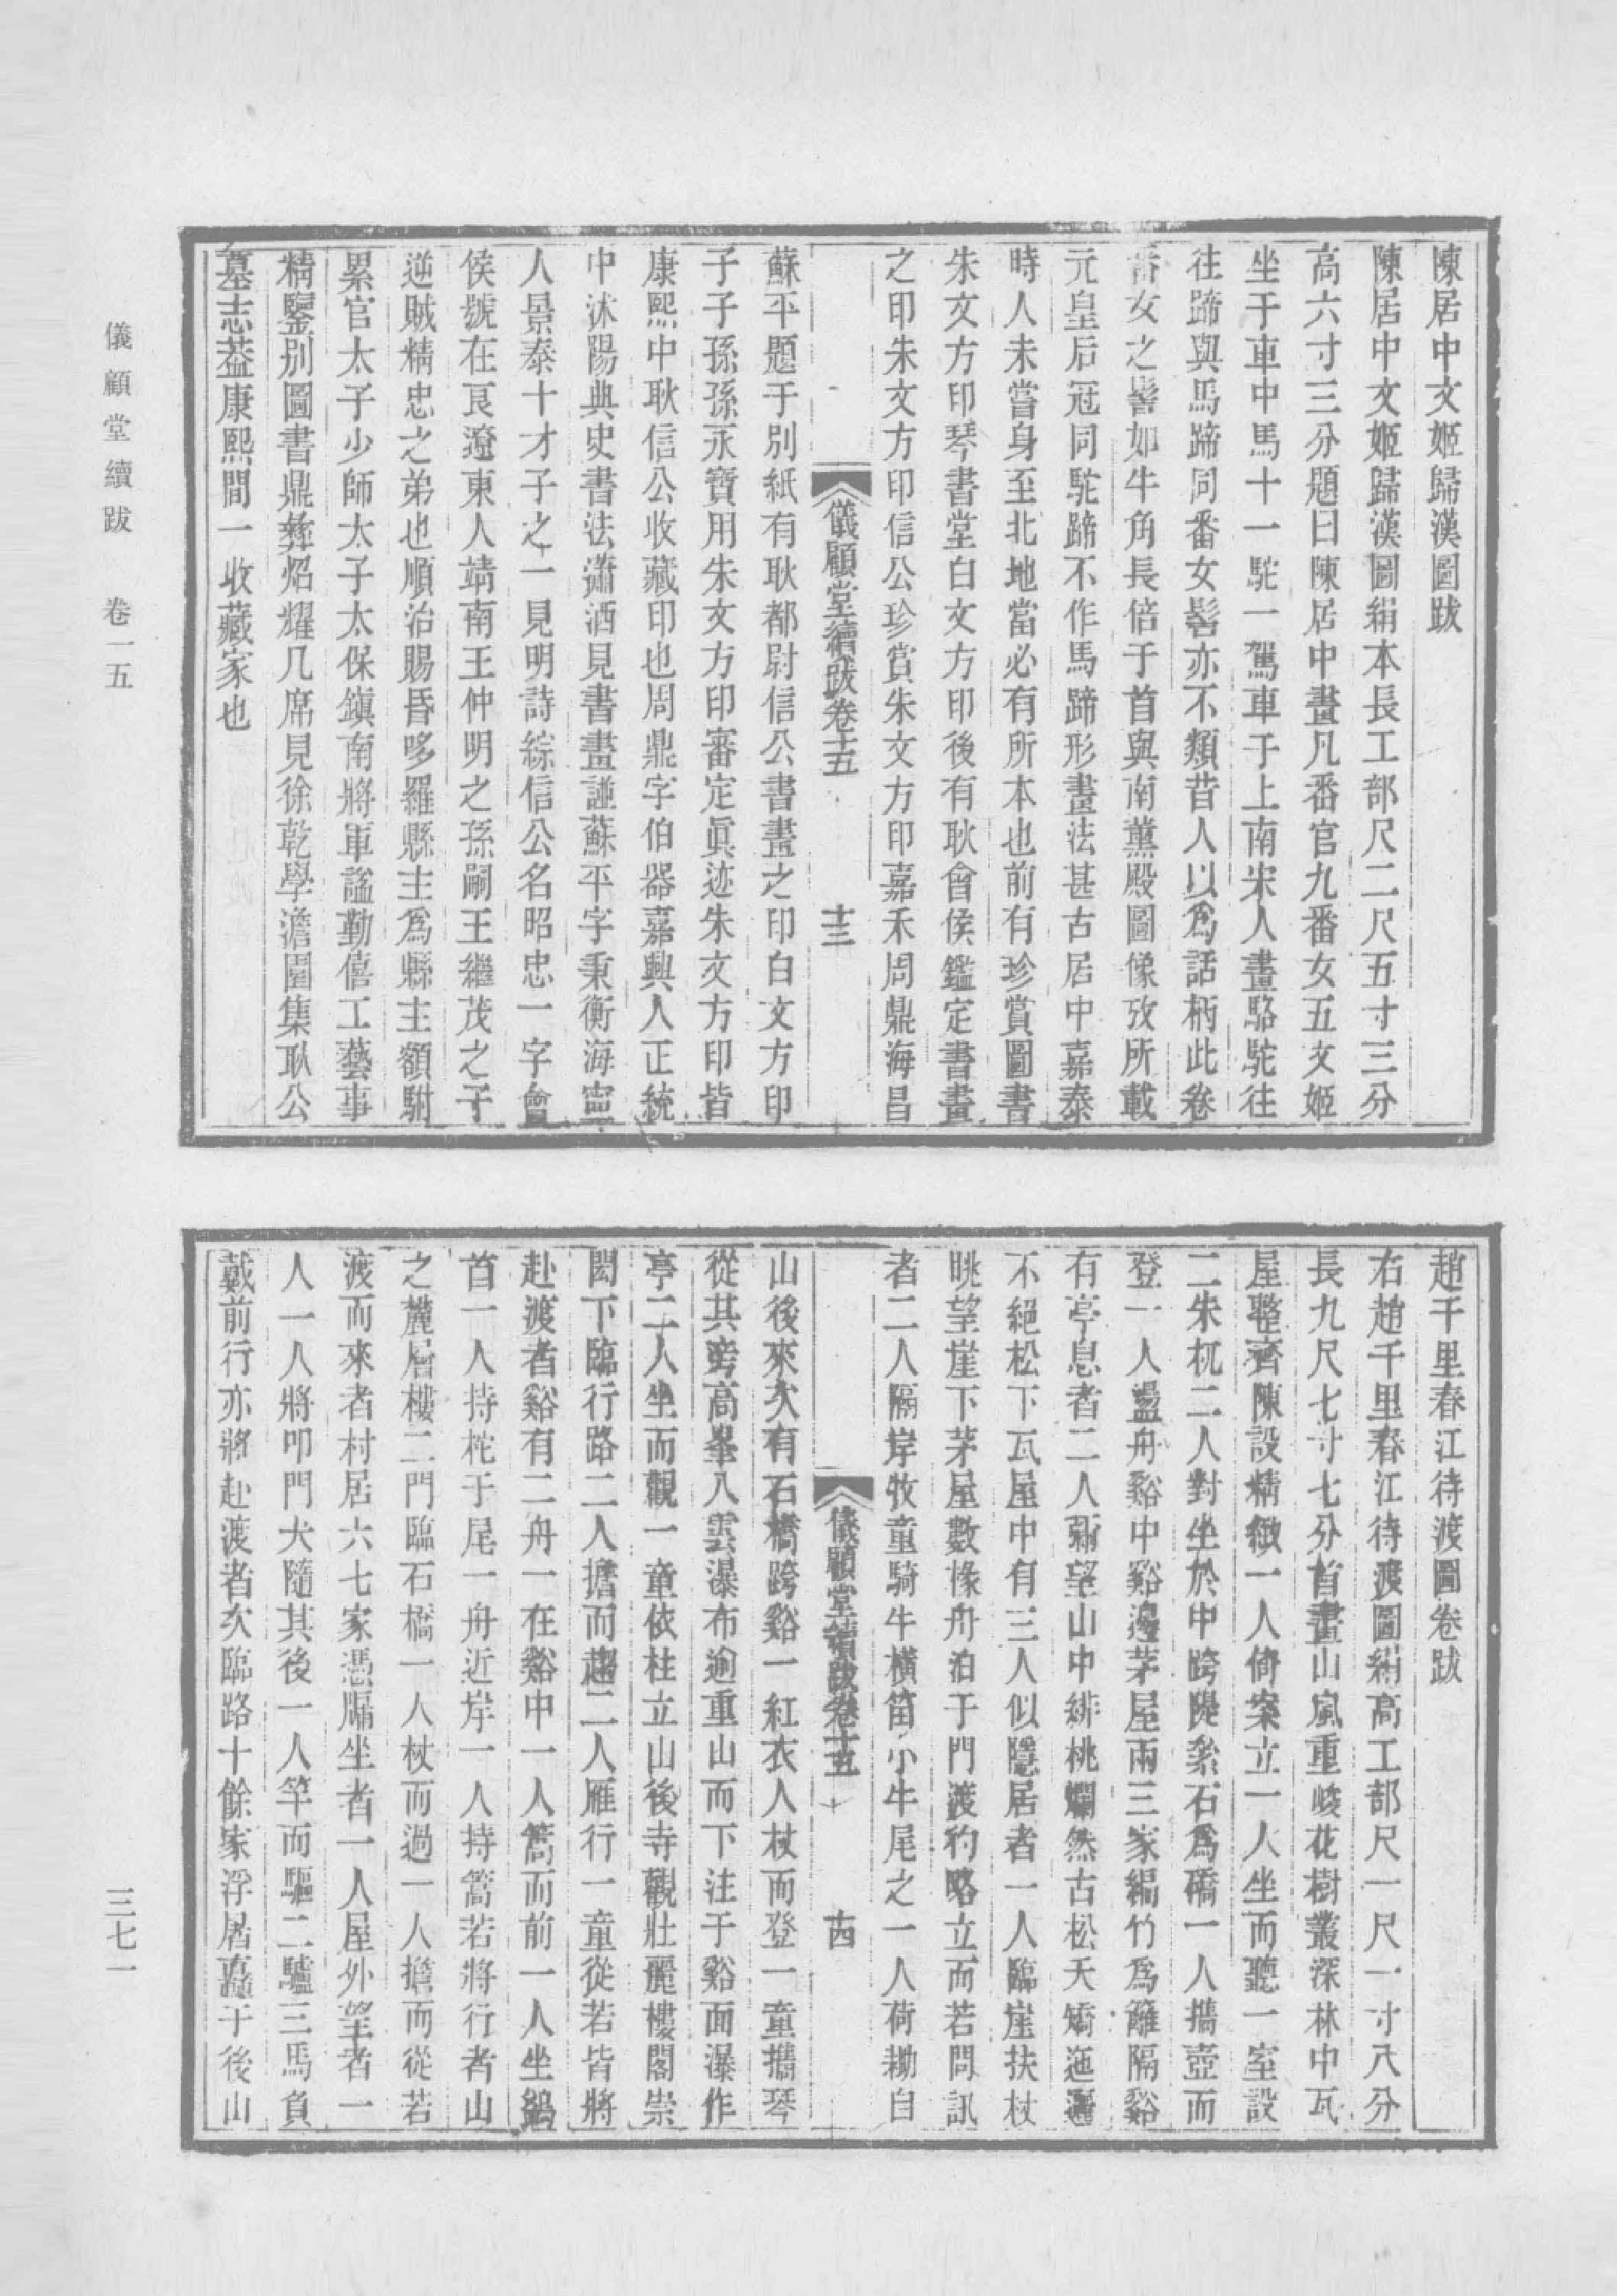 陳居中文姬歸漢圖跋
陳居中文姬歸漢圖絹本長工部尺二尺五寸三分
高六寸三分題曰陳居中畫凡番官九番女五文姬
坐于車中馬十一駝一駕車于上南宋人畫駱駝往
往蹄與馬蹄同番女髻亦不類昔人以爲話柄此卷
番女之髻如牛角長倍于首與南薰殿圖像攷所載
元皇后冠同駝蹄不作馬蹄形畫法甚古居中嘉泰
時人未嘗身至北地當必有所本也前有珍賞圖書
朱文方印琴書堂白文方印後有耿會侯鑑定書畫
之印朱文方印信公珍賞朱文方印嘉禾周鼎海昌
儀顧堂續跋卷十五
十三
蘇平題于別紙有耿都尉信公書畫之印白文方印
子子孫孫永寶用朱文方印審定眞迹朱文方印皆
康熙中耿信公收藏印也周鼎字伯器嘉興人正統
中沭陽典史書法瀟洒見書畫譜蘇平字秉衡海寧
人景泰十才子之一見明詩綜信公名昭忠一字會
侯號在良遼東人靖南王仲明之孫嗣王繼茂之子
逆賊精忠之弟也順治賜昏哆羅縣主爲縣主額駙
累官太子少師太子太保鎭南將軍諡勤僖工藝事
精鑒別圖書鼎彝炤耀几席見徐乾學澹園集耿公
墓志葢康熙間一收藏家也
趙千里春江待渡圖卷跋
右趙千里春江待渡圖絹高工部尺一尺一寸八分
長九尺七寸七分首畫山嵐重峻花樹叢深林中瓦
屋整齊陳設精緻一人倚案立一人坐而聽一室設
二朱杌二人對坐於中跨隄絫石爲礄一人攜壺而
登一人盪舟谿中谿邊茅屋兩三家編竹爲籬隔谿
有亭息者二人翫望山中緋桃爛然古松夭矯迤邐
不絕松下瓦屋中有三人似隱居者一人臨崖扶杖
眺望崖下茅屋數椽舟泊于門渡彴略立而若問訊
者二人隔岸牧童騎牛橫笛小牛尾之一人荷耡自
儀顧堂續跋卷十五
十四
山後來次有石橋跨谿一紅衣人杖而登一童攜琴
從其旁高峯入雲瀑布逾重山而下注于谿面瀑作
亭二人坐而觀一童依柱立山後寺觀壯麗樓閣崇
閎下臨行路二人擔而趨二人雁行一童從若皆將
赴渡者谿有二舟一在谿中一人篙而前一人坐船
首一人持柁于尾一舟近岸一人持篙若將行者山
之麓層樓二門臨石橋一人杖而過一人擔而從若
渡而來者村居六七家憑牖坐者一人屋外望者一
人一人將叩門犬隨其後一人竿而驅二驢三馬負
戴前行亦將赴渡者次臨路十餘家浮屠矗于後山
儀顧堂續跋 卷一五
三七一